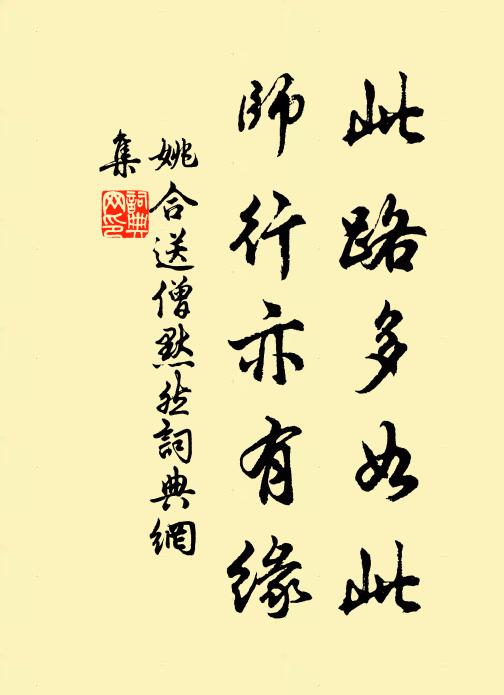 此路多如此
師行亦有緣
姚合送僧默然詞典網
集
詞典网印